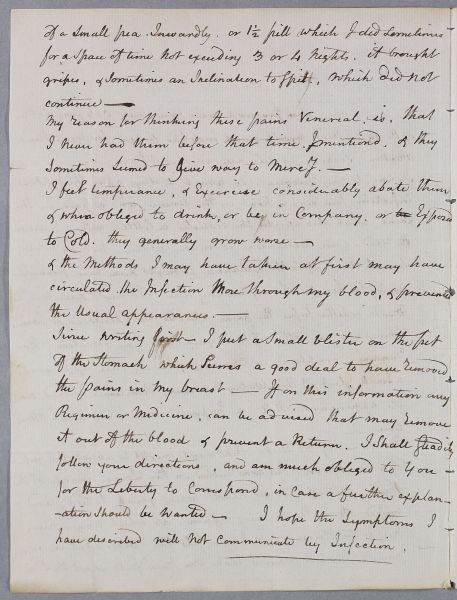 of a Small pea Inwardly. or 1½ pill which I did Sometimes
for a Space of time Not exceeding 3 or 4 Nights. it brought
gripes, & Sometimes an Inclination to Spitt, which did not
continue —
My reason for thinking these pains Venereal is, that
I never had them before that time I mentiond. & they
Sometimes Seemed to give way to Mercy. —
I feel temperance, & Excercise considerably abate them
& when obliged to drink, or be in Company, or Exposed
to Cold. they generally grow worse —
& the Methods I may have taken at first may have
circulated the Infection More through my blood, & prevented
the Usual appearances. —
Since writing first — I put a Small blister on the pit
of the Stomach which Seems a good deal to have removed
the pains in my breast — If on this information any
Regimen or Medicine, can be advised that may remove
it out of the blood & prevent a Return. I Shall Steadily
follow your directions, and am much obliged to you
for the Liberty to Correspond, in case a further explan-
-ation Should be Wanted — I hope the Symptoms I
have described will Not communicate by Infection.